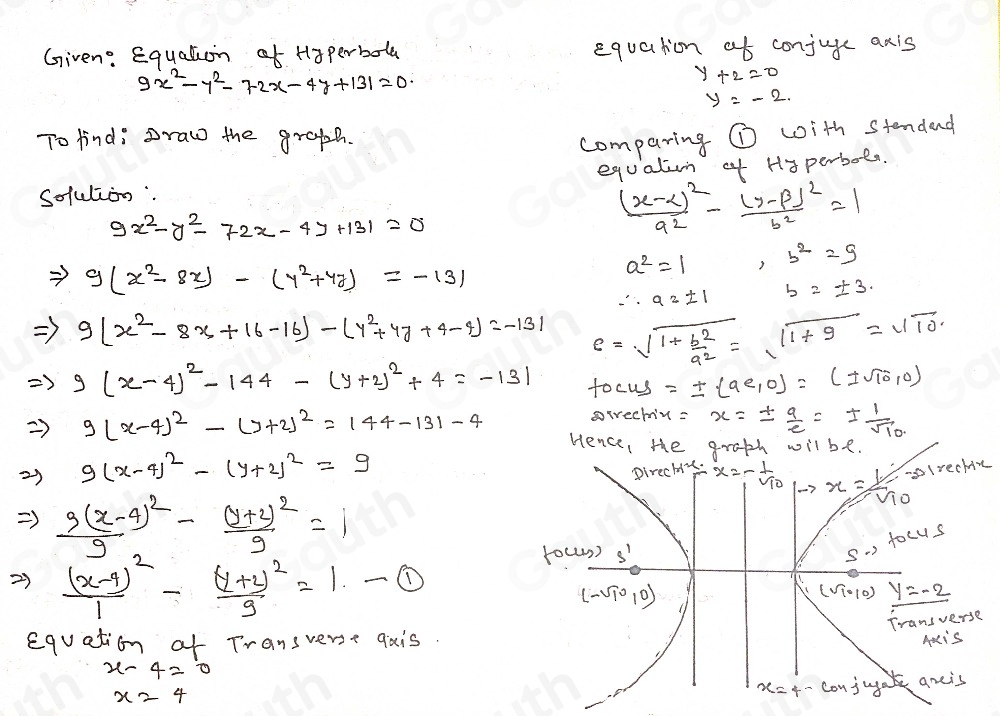 Given: Equation of Hyperbola
9x² - y² - 72x - 4y + 131 = 0.
To find: Draw the graph.
Solution:
9x² - y² - 72x - 4y + 131 = 0
⇒ 9(x² - 8x) - (y² + 4y) = -131
⇒ 9(x² - 8x + 16 - 16) - (y² + 4y + 4 - 4) = -131
⇒ 9(x-4)² - 144 - (y+2)² + 4 = -131
⇒ 9(x-4)² - (y+2)² = 144 - 131 - 4
⇒ 9(x-4)² - (y+2)² = 9
⇒ 9(x-4)²/9 - (y+2)²/9 = 1
⇒ (x-4)²/1 - (y+2)²/9 = 1. - ①
Equation of Transverse axis.
x - 4 = 0
x = 4
Equation of conjuge axis
y + 2 = 0
y = -2.
Comparing ① with standend
equation of Hyperbola.
(x-α)²/a² - (y-β)²/b² = 1
a² = 1 , b² = 9
∴ a = ±1 b = ±3.
e = √(1 + b²/a²) = √(1 + 9) = √10.
focus = ±(ae, 0) = (±√10, 0)
Directrix = x = ± a/e = ± 1/√10.
Hence, the graph wil be.
Directrix: x = -1/√10 → x = 1/√10 = Directrix
focus) s' s → focus
(-√10, 0) (√10, 0) y = -2
Transverse
Axis
x = 4 - conjugate axis
Gauth